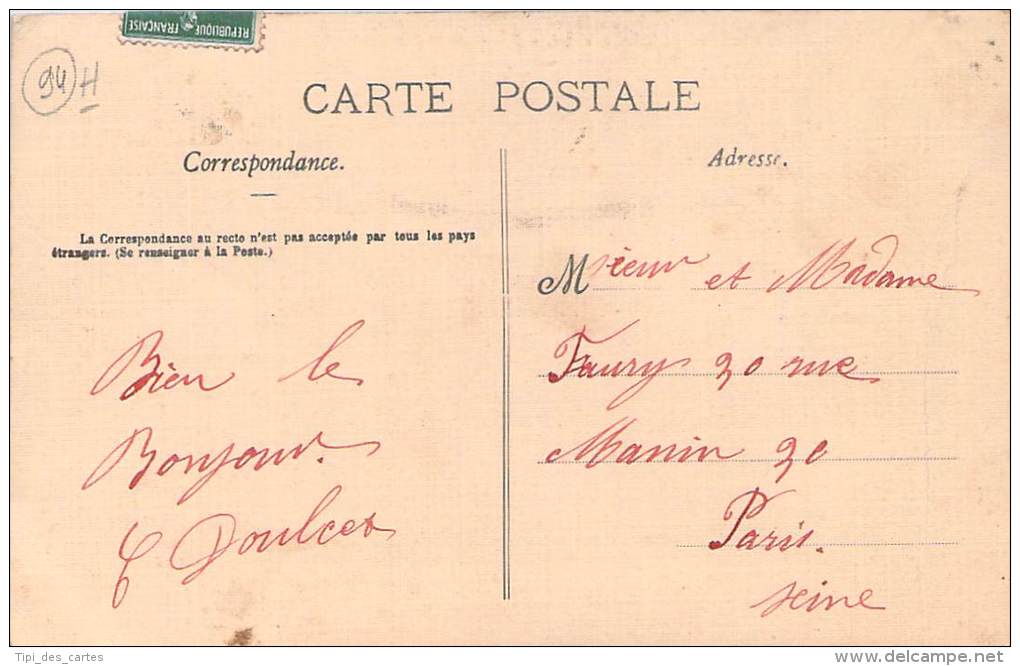 REPUBLIQUE FRANÇAISE
94 H
CARTE POSTALE
Correspondance.
La Correspondance au recto n'est pas acceptée par tous les pays
étrangers. (Se renseigner à la Poste.)
Bien le
Bonjour.
Doulcet
Adresse.
Msieur et Madame
Faury 20 rue
Manin 20
Paris.
Seine
Tipi_des_cartes
delcampe.net